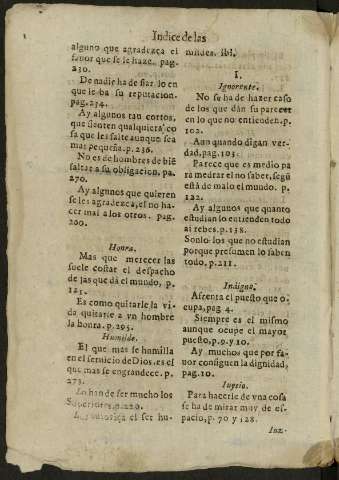 Indice de las
alguno que agradezca el
fauor que se le haze. pag.
230.
De nadie ha de fiar lo en
que le ba su reputacion.
pag. 234.
Ay algunos tan cortos,
que sienten qualquiera co
sa que les falte aunque sea
mas pequeña. p. 236.
No es de hombres de biē
faltar a su obligacion. pa.
270.
Ay algunos que quieren
se les agradezca, el no ha-
cer mal a los otros. pag.
260.
Honra.
Mas que merecer las
suele costar el despacho
de las que dà el mundo, p.
125.
Es como quitarle la vi-
da quitarle a vn hombre
la honra. p. 295.
Humilde.
El que mas se humilla
en el seruicio de Dios, es el
que mas se engrandece. p.
273.
Lo han de ser mucho los
Superiores. p. 220.
el ser hu-
mildes. ibi.
I.
Ignorente.
No se ha de hazer caso
de los que dàn su parecer
en lo que no entienden. p.
102.
Aun quando digan ver-
dad, pag. 103.
Parece que es medio pa
ra medrar el no saber, segū
està de malo el mundo. p.
122.
Ay algunos que quanto
estudian lo entienden todo
al rebes. p. 138.
Sonlo los que no estudian
porque presumen lo saben
todo. p. 211.
Indigno.
Afrenta el puesto que o-
cupa, pag 4.
Siempre es el mismo
aunque ocupe el mayor
puesto, p. 9. y 10.
Ay muchos que por fa-
uor consiguen la dignidad,
pag. 10.
Iuyzio.
Para hacerle de vna cosa
se ha de mirar muy de es-
pacio, p. 70 y 128.
Iuz-